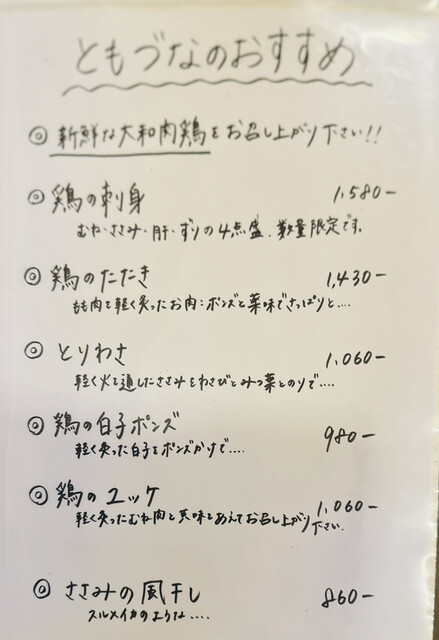 ともづなのおすすめ
◎ 新鮮な大和肉鶏をお召し上がり下さい!!
◎ 鶏の刺身 1,580-
むね・ささみ・肝・ずりの4点盛、数量限定です。
◎ 鶏のたたき 1,430-
もも肉を軽く炙ったお肉:ポンズと薬味でさっぱりと....
◎ とりわさ 1,060-
軽く火を通したささみをわさびとみつ葉とのりで....
◎ 鶏の白子ポンズ 980-
軽く炙った白子をポンズかけで....
◎ 鶏のユッケ 1,060-
軽く炙ったむね肉と薬味とあえてお召し上がり
下さい.
◎ ささみの風干し 860-
スルメイカのような....